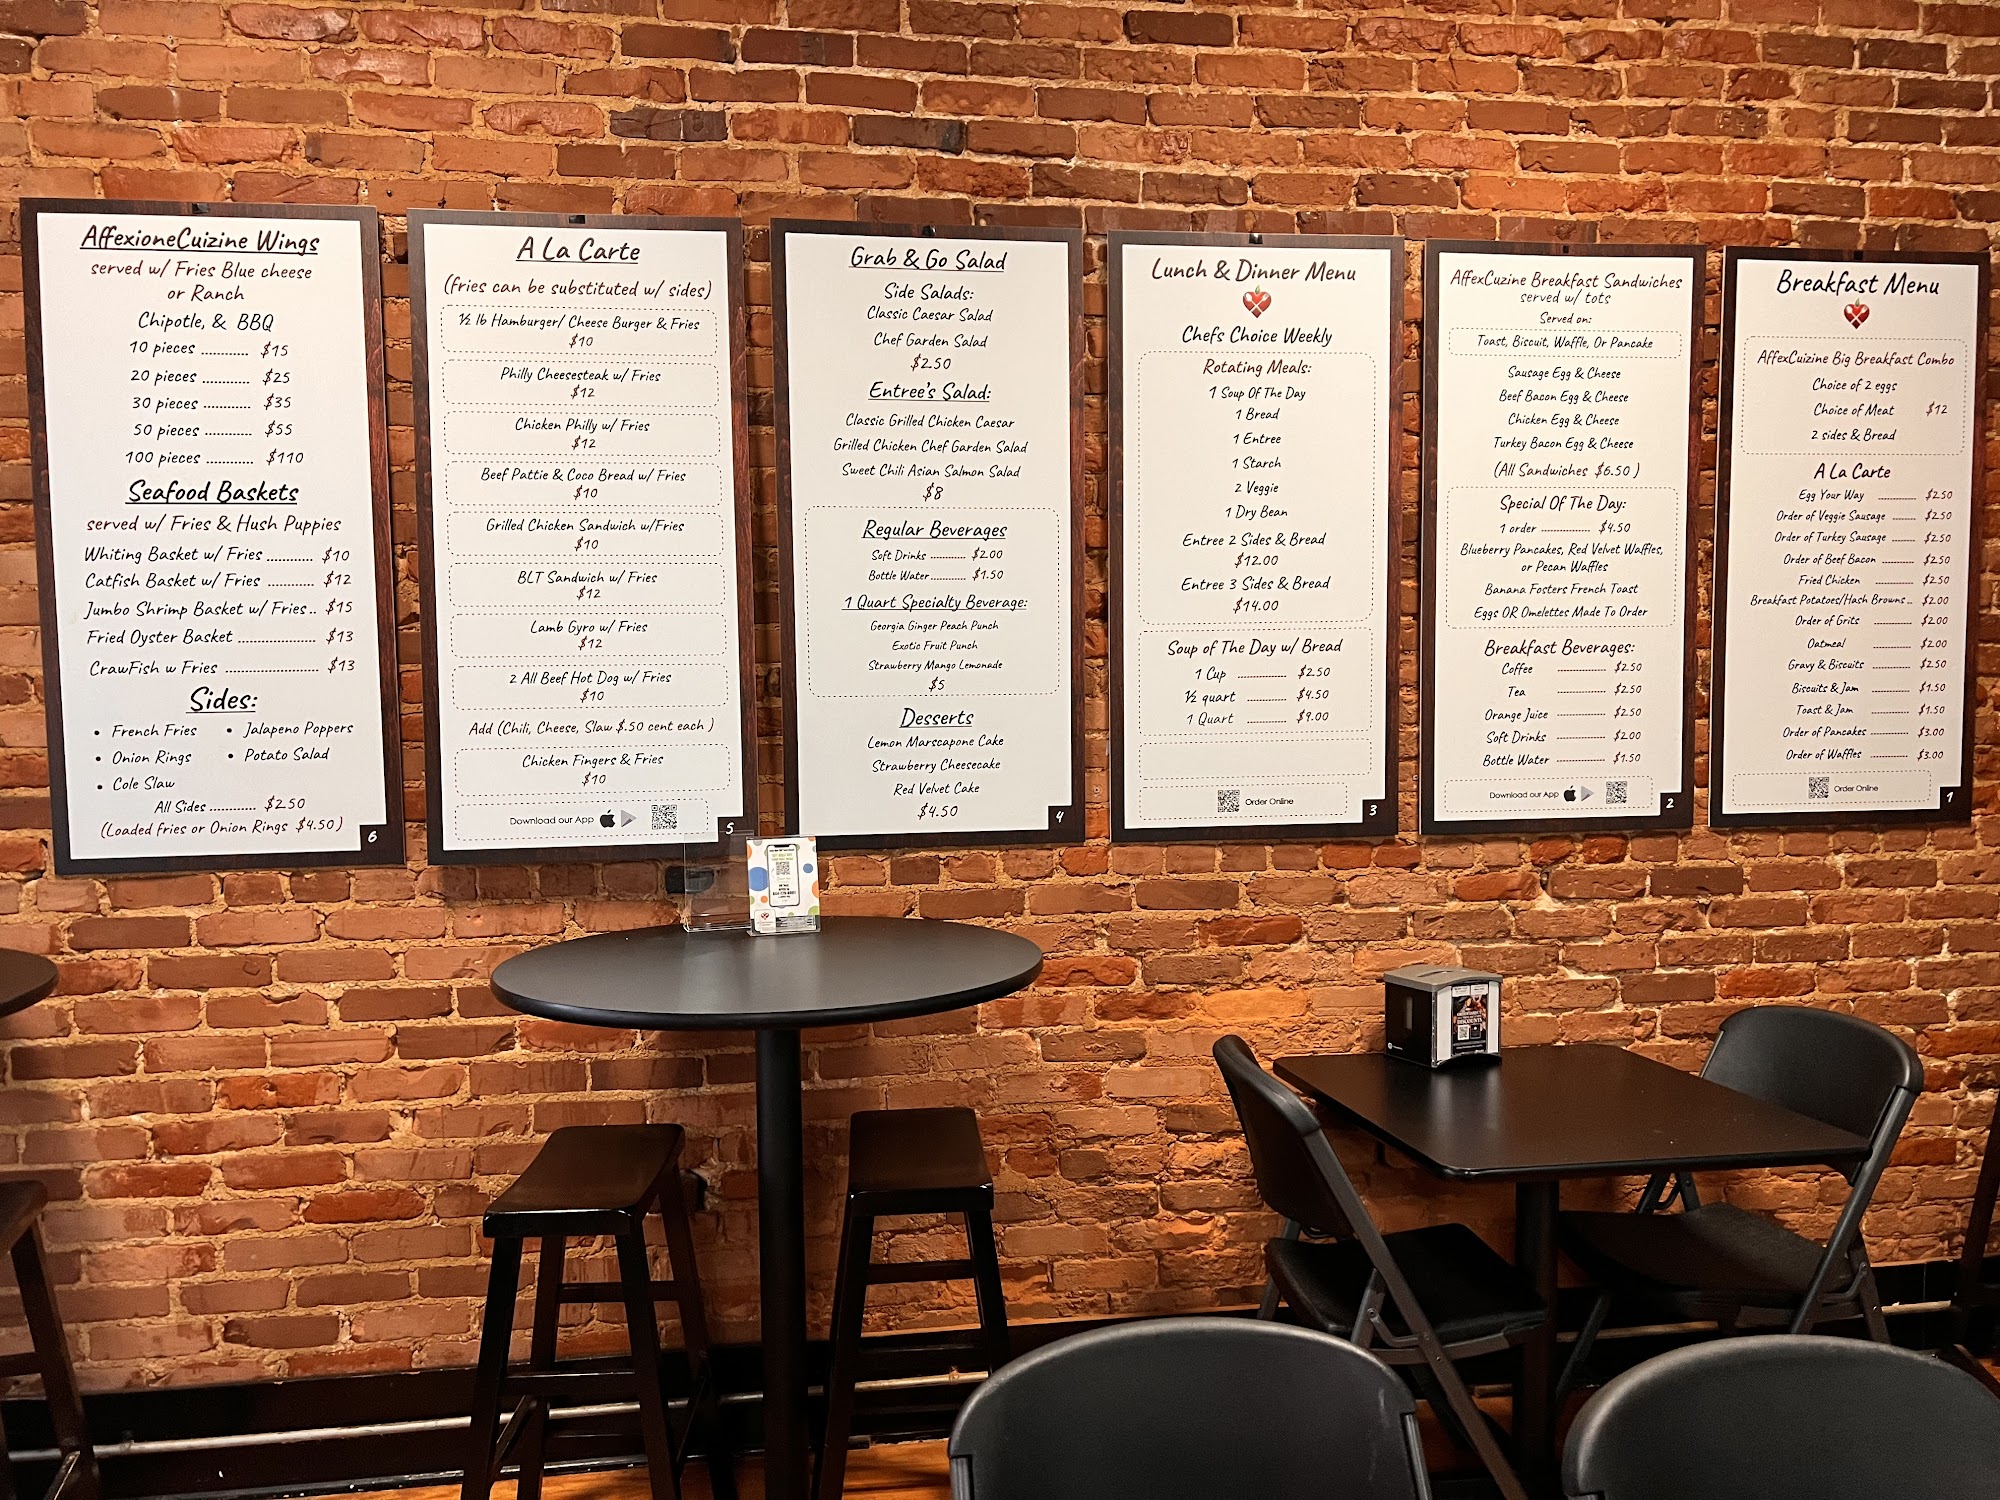 AffexioneCuizine Wings
served w/ Fries Blue cheese
or Ranch
Chipotle, & BBQ
10 pieces ............ $15
20 pieces ............ $25
30 pieces ............ $35
50 pieces ............ $55
100 pieces ............ $110
Seafood Baskets
served w/ Fries & Hush Puppies
Whiting Basket w/ Fries ............ $10
Catfish Basket w/ Fries ............ $12
Jumbo Shrimp Basket w/ Fries.. $15
Fried Oyster Basket .................... $13
CrawFish w Fries ........................ $13
Sides:
• French Fries
• Onion Rings
• Cole Slaw
• Jalapeno Poppers
• Potato Salad
All Sides ............ $2.50
(Loaded fries or Onion Rings $4.50)
6
A La Carte
(fries can be substituted w/ sides)
½ lb Hamburger/ Cheese Burger & Fries
$10
Philly Cheesesteak w/ Fries
$12
Chicken Philly w/ Fries
$12
Beef Pattie & Coco Bread w/ Fries
$10
Grilled Chicken Sandwich w/Fries
$10
BLT Sandwich w/ Fries
$12
Lamb Gyro w/ Fries
$12
2 All Beef Hot Dog w/ Fries
$10
Add (Chili, Cheese, Slaw $.50 cent each )
Chicken Fingers & Fries
$10
Download our App
5
Grab & Go Salad
Side Salads:
Classic Caesar Salad
Chef Garden Salad
$2.50
Entree's Salad:
Classic Grilled Chicken Caesar
Grilled Chicken Chef Garden Salad
Sweet Chili Asian Salmon Salad
$8
Regular Beverages
Soft Drinks ............ $2.00
Bottle Water............ $1.50
1 Quart Specialty Beverage:
Georgia Ginger Peach Punch
Exotic Fruit Punch
Strawberry Mango Lemonade
$5
Desserts
Lemon Marscapone Cake
Strawberry Cheesecake
Red Velvet Cake
$4.50
4
Lunch & Dinner Menu
Chefs Choice Weekly
Rotating Meals:
1 Soup Of The Day
1 Bread
1 Entree
1 Starch
2 Veggie
1 Dry Bean
Entree 2 Sides & Bread
$12.00
Entree 3 Sides & Bread
$14.00
Soup of The Day w/ Bread
1 Cup ............... $2.50
½ quart ............ $4.50
1 Quart ............ $9.00
Order Online
3
AffexCuzine Breakfast Sandwiches
served w/ tots
Served on:
Toast, Biscuit, Waffle, Or Pancake
Sausage Egg & Cheese
Beef Bacon Egg & Cheese
Chicken Egg & Cheese
Turkey Bacon Egg & Cheese
(All Sandwiches $6.50 )
Special Of The Day:
1 order ............... $4.50
Blueberry Pancakes, Red Velvet Waffles,
or Pecan Waffles
Banana Fosters French Toast
Eggs OR Omelettes Made To Order
Breakfast Beverages:
Coffee ............... $2.50
Tea ............... $2.50
Orange Juice ............... $2.50
Soft Drinks ............... $2.00
Bottle Water ............... $1.50
Download our App
2
Breakfast Menu
AffexCuizine Big Breakfast Combo
Choice of 2 eggs
Choice of Meat $12
2 sides & Bread
A La Carte
Egg Your Way ............ $2.50
Order of Veggie Sausage ........ $2.50
Order of Turkey Sausage ........ $2.50
Order of Beef Bacon ............ $2.50
Fried Chicken ............ $2.50
Breakfast Potatoes/Hash Browns.. $2.00
Order of Grits ............ $2.00
Oatmeal ............ $2.00
Gravy & Biscuits ............ $2.50
Biscuits & Jam ............ $1.50
Toast & Jam ............ $1.50
Order of Pancakes ............ $3.00
Order of Waffles ............ $3.00
Order Online
1